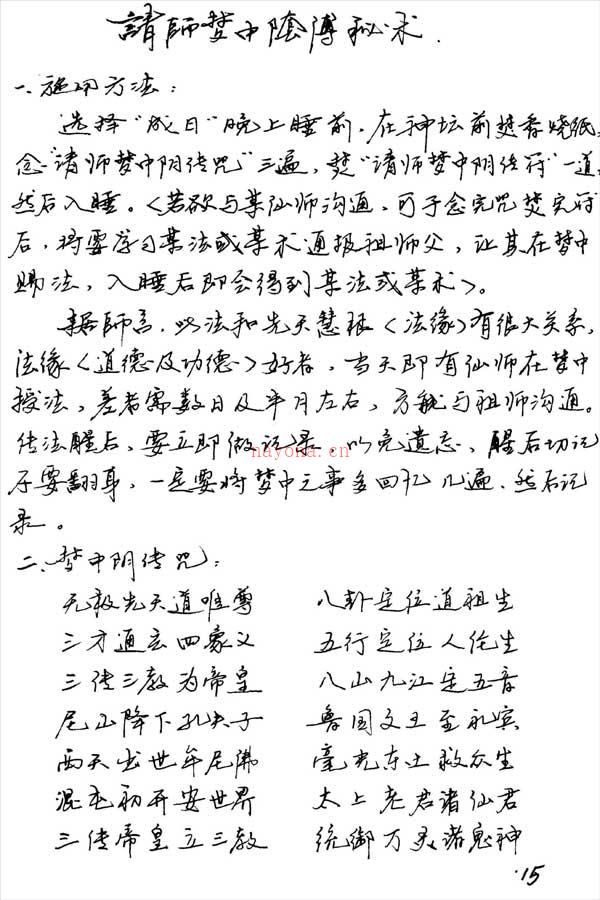 請師梦中陰傳秘术.
一、施用方法:
选择“成日”晚上睡前,在神坛前焚香烧纸,
念“请师梦中阴传咒”三遍,焚“请师梦中阴传符”一道,
然后入睡。<若欲与某仙师沟通,可于念完咒焚完符
后,将要学习某法或某术通报祖师父,让其在梦中
赐法,入睡后即会得到某法或某术>。
據師言,此法和先天慧根<法缘>有很大关系,
法缘<道德及功德>好者,当天即有仙师在梦中
授法,差者需数日及半月左右,方能与祖师沟通。
传法醒后,要立即做记录,以免遗忘,醒后切记
不要翻身,一定要将梦中之事多回忆几遍、然后记
录。
nayona.cn
二、梦中阴传咒:
无极先天道唯尊 八卦定位道祖生
三才通玄四象义 五行定位人伦生
三传三教为帝皇 八山九江定五音
尼山降下孔夫子 鲁国文王至礼宾
西天出世牟尼佛 毫光东土救众生
混沌初开安世界 太上老君诸仙君
三传帝皇立三教 统御万灵诸鬼神
·15